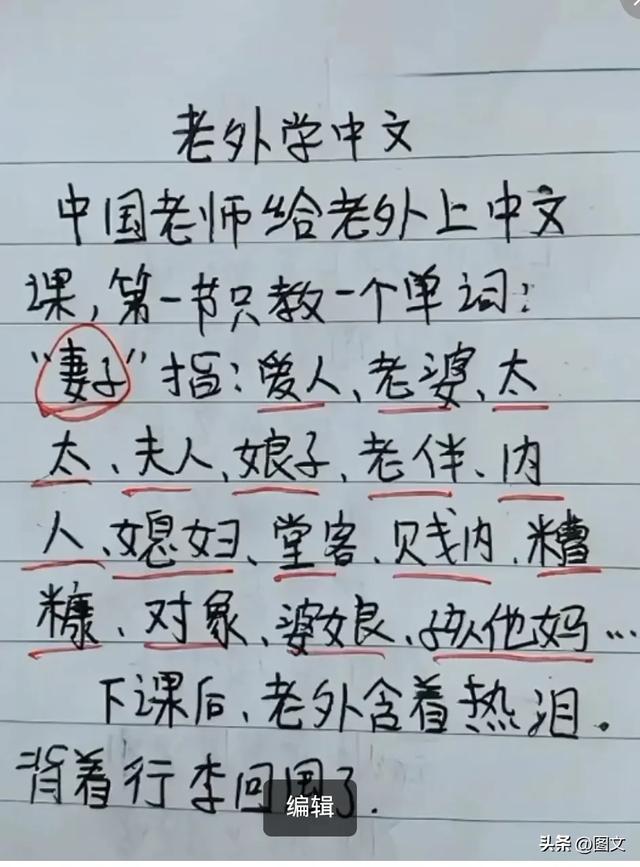 老外学中文
中国老师给老外上中文
课,第一节只教一个单词:
"妻子"指:爱人、老婆、太
太、夫人、娘子、老伴、内
人、媳妇、堂客、贱内、糟
糠、对象、婆娘、孩他妈…
下课后、老外含着热泪.
背着行李回国了.
编辑
头条 @图文